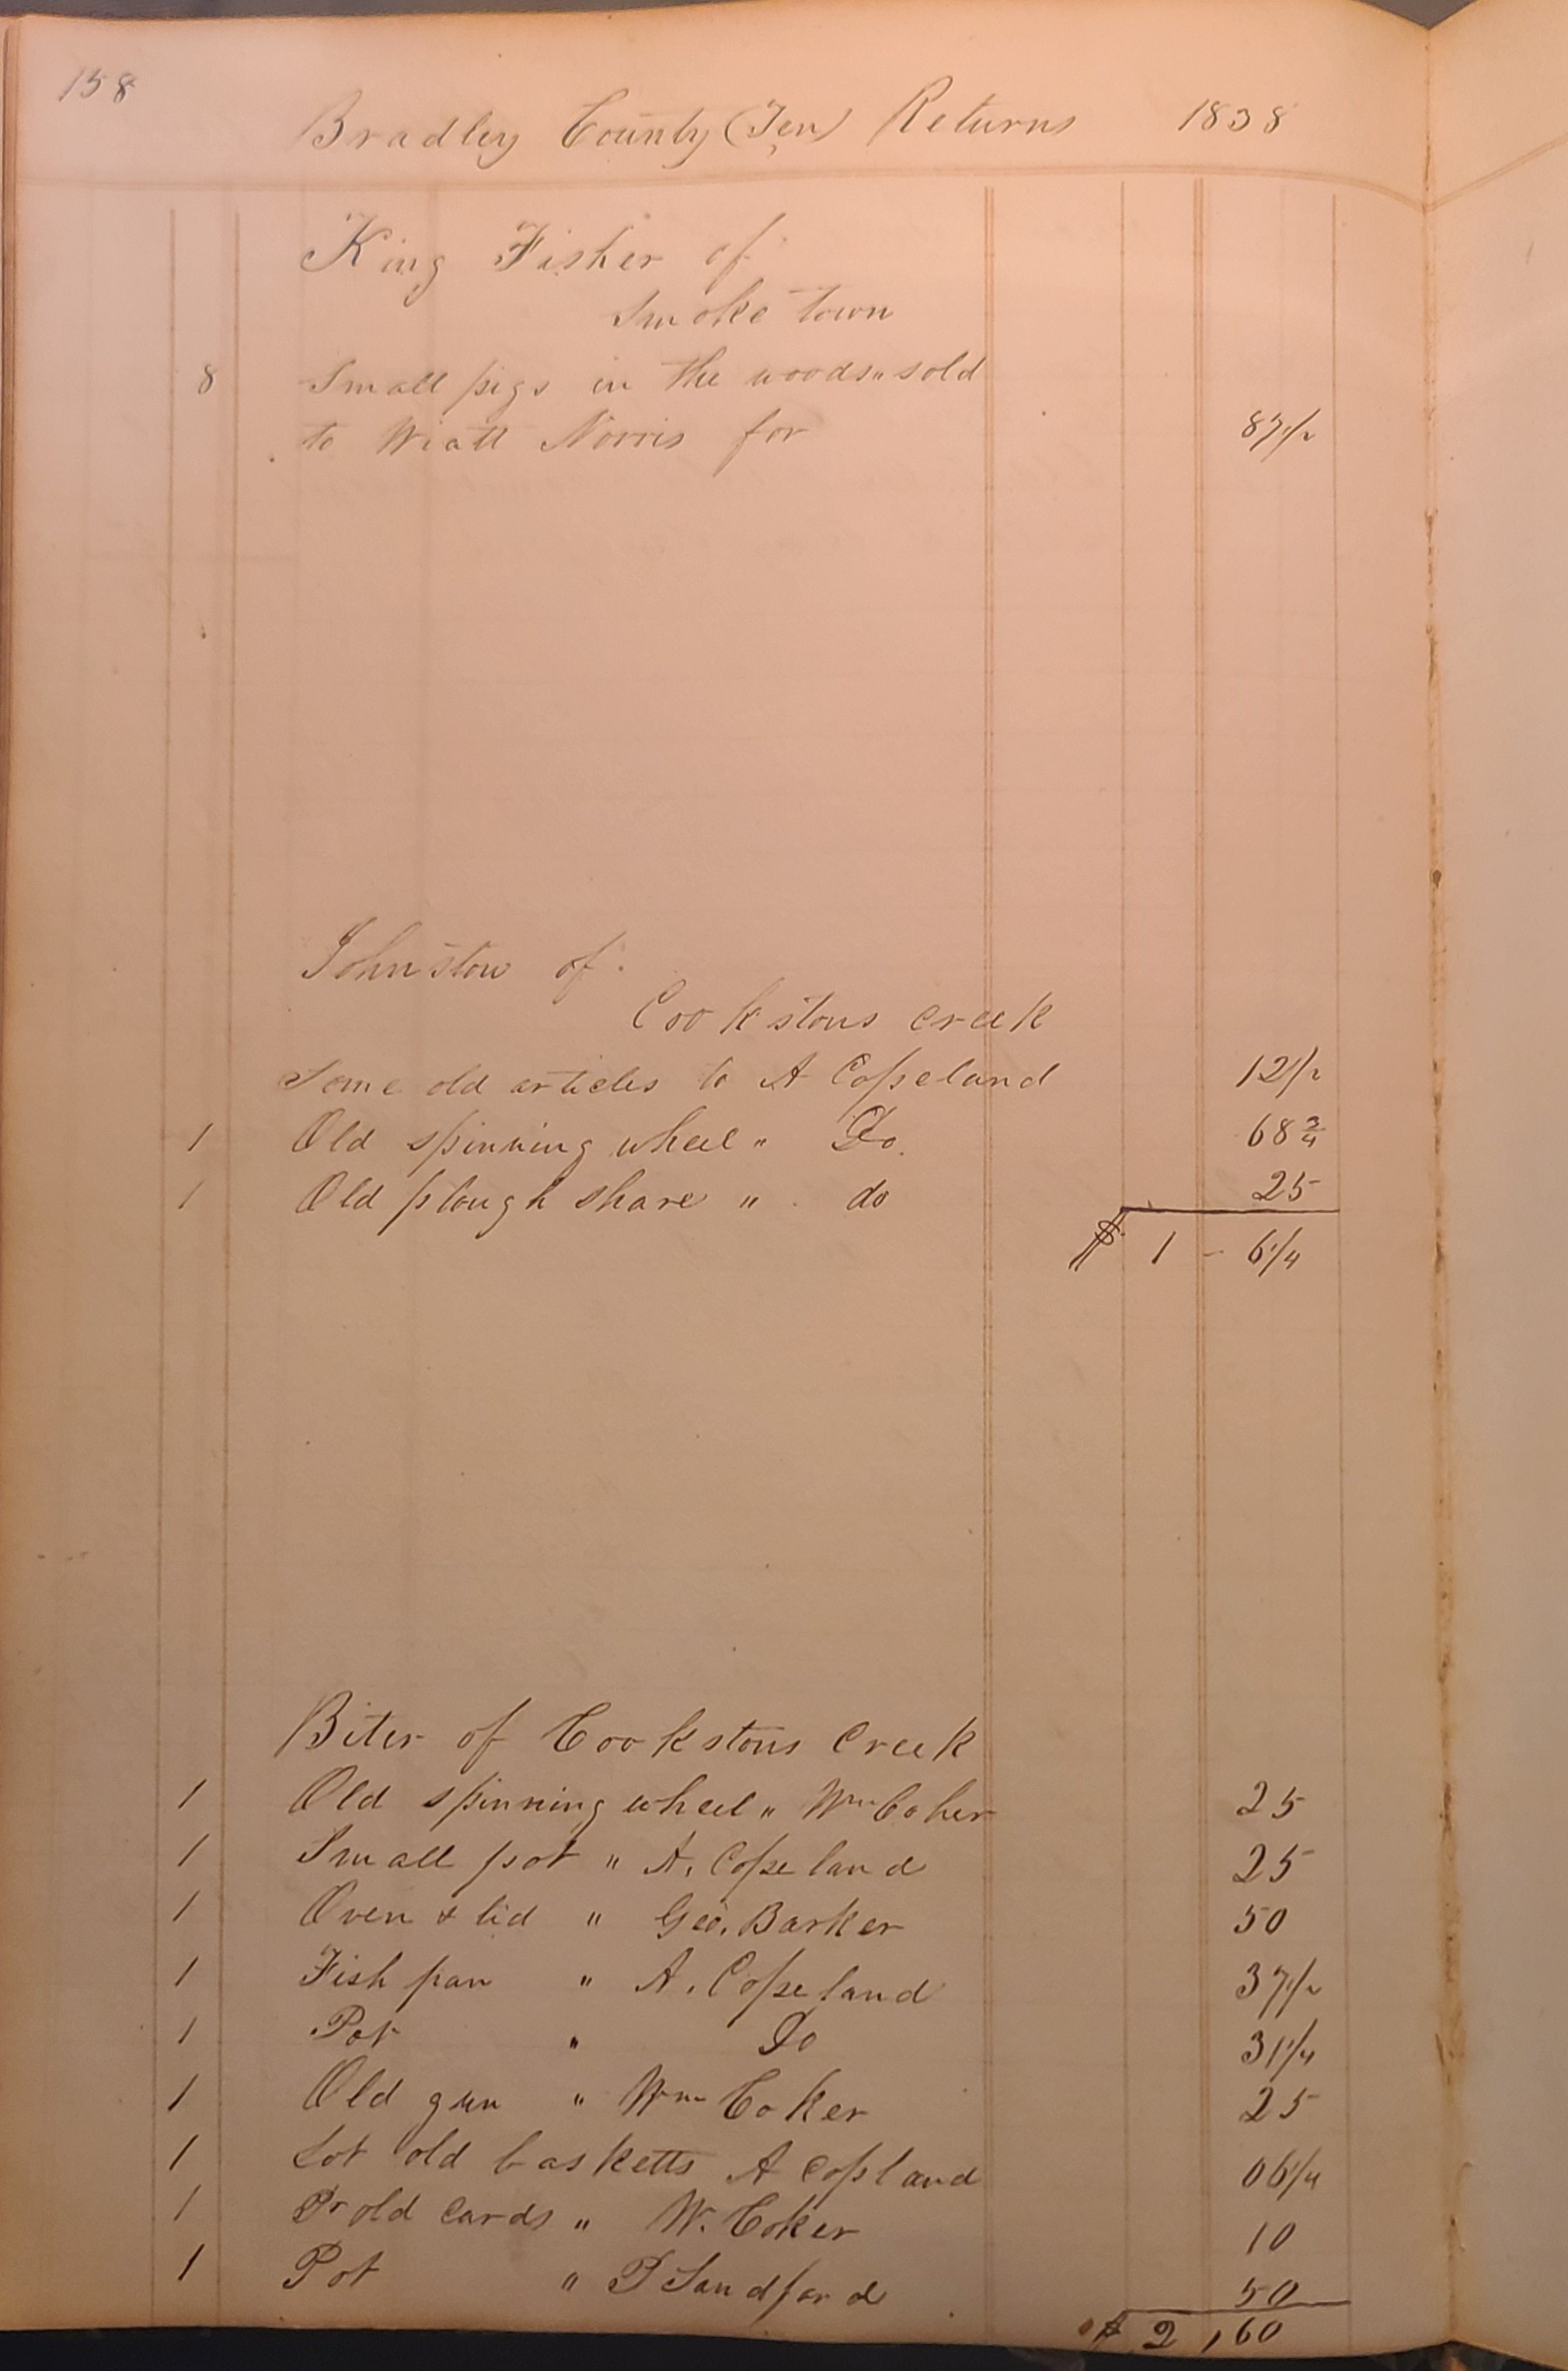 158
Bradley County (Ten) Returns 1838
King Fisher of
Smoke town
8 Small pigs in the woods " sold
to Wiatt Norris for 87 1/2
Johnston of
Cookstons creek
Some old articles to A Copeland 12 1/2
1 Old spinning wheel " Do. 68 3/4
1 Old plough share " do 25
$ 1 - 6 1/4
Biter of Cookstons Creek
1 Old spinning wheel " Wm Coker 25
1 Small pot " A. Copeland 25
1 Oven & lid " Geo. Barker 50
1 Fish pan " A. Copeland 37 1/2
1 Pot " Do 31 1/4
1 Old gun " Wm Coker 25
1 Lot old basketts A Copland 06 1/4
1 Pr old Cards " W. Coker 10
1 Pot " P Sandford 50
$ 2, 60